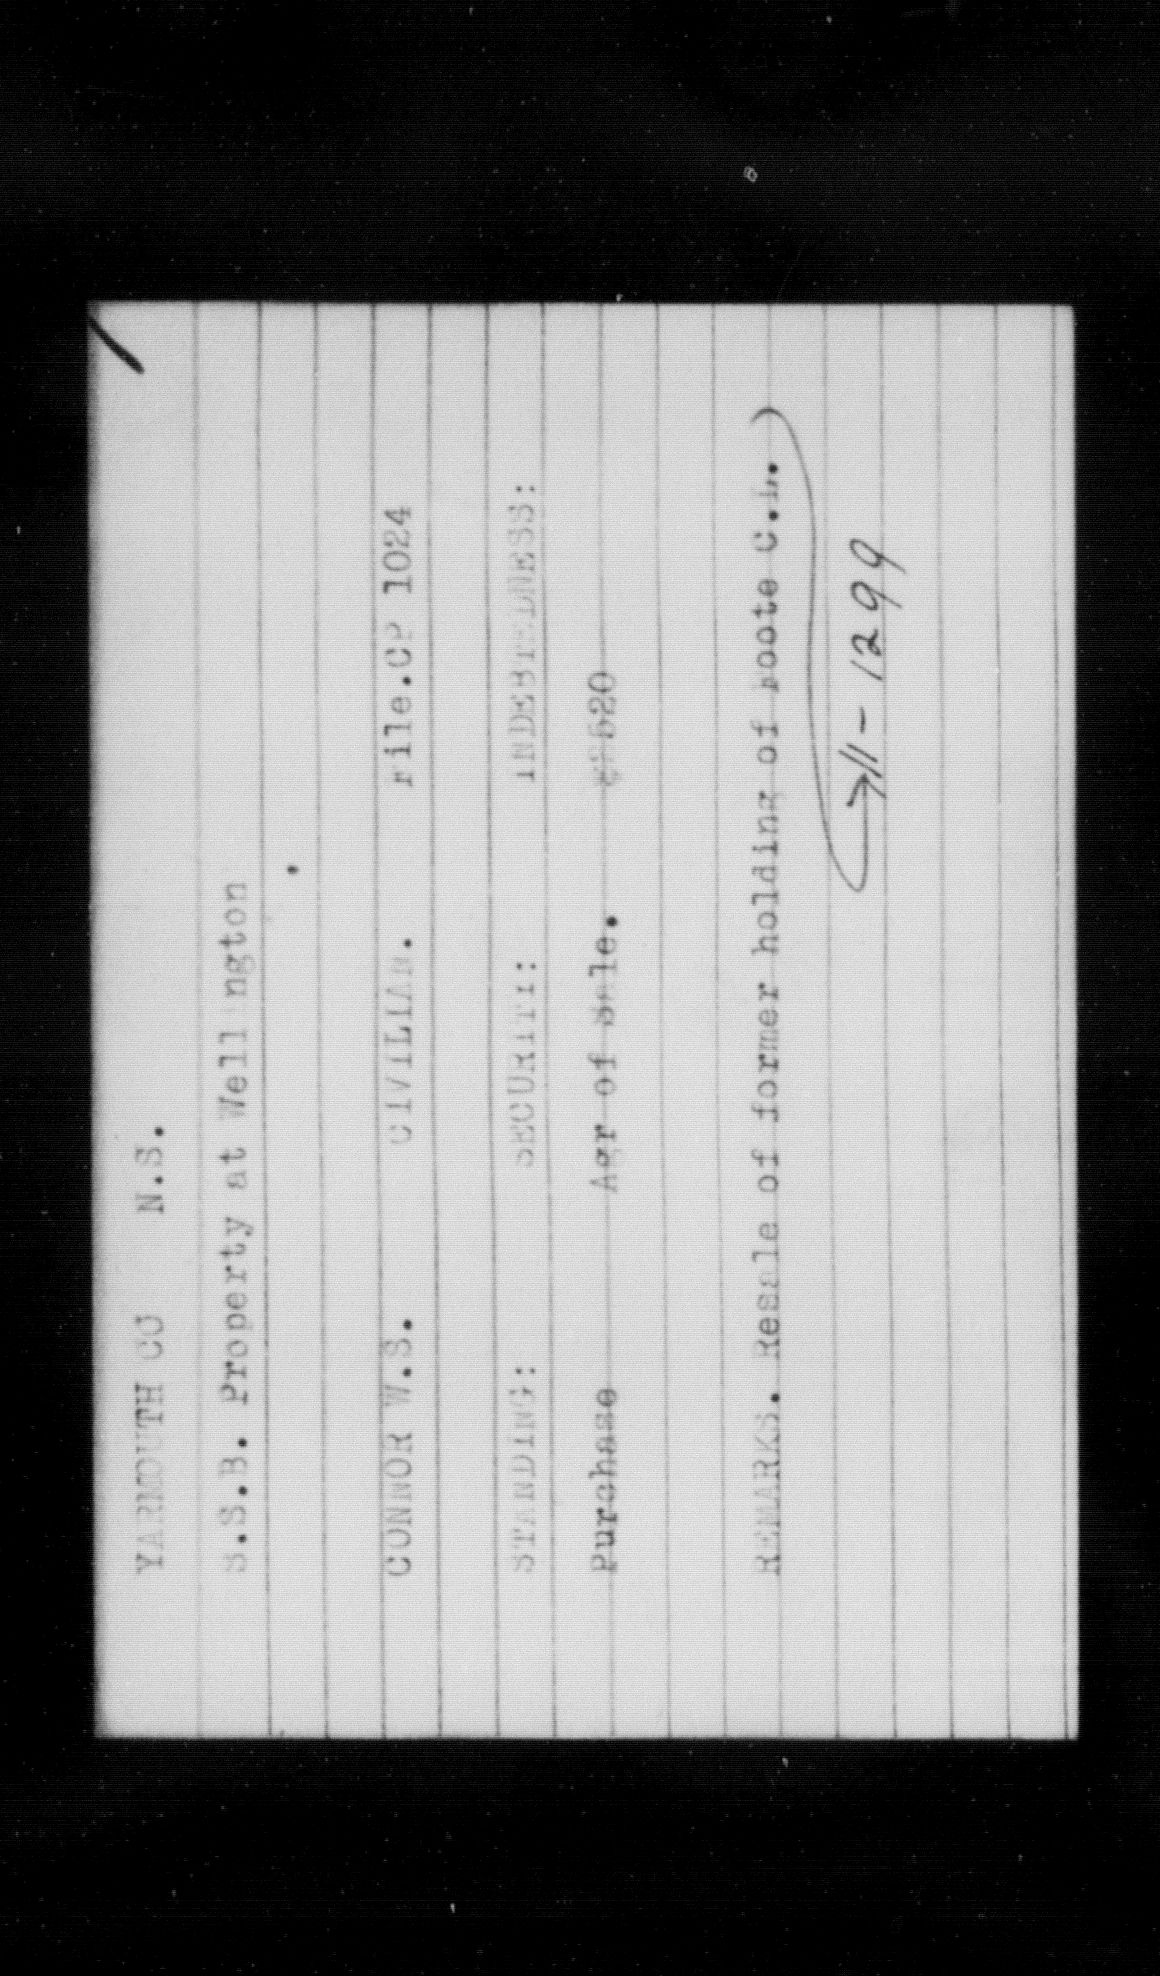 YARMOUTH CO N.S.
S.S.B. Property at Well ngton
CONNOR W.S. CIVILIAN. File.CP 1024
STANDING: SECURITY: INDEBTEDNESS:
Purchase Agr of Sale.
REMARKS. Resale of former holding of Foote C.L.
11-1299